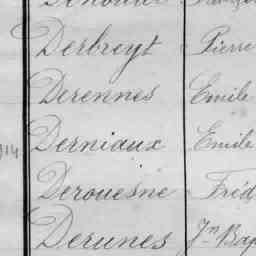 Derbreyt Pierre
Derennes Emile
914 Derniaux Emile
Derouesne Fréd
Derunes Jn Bap